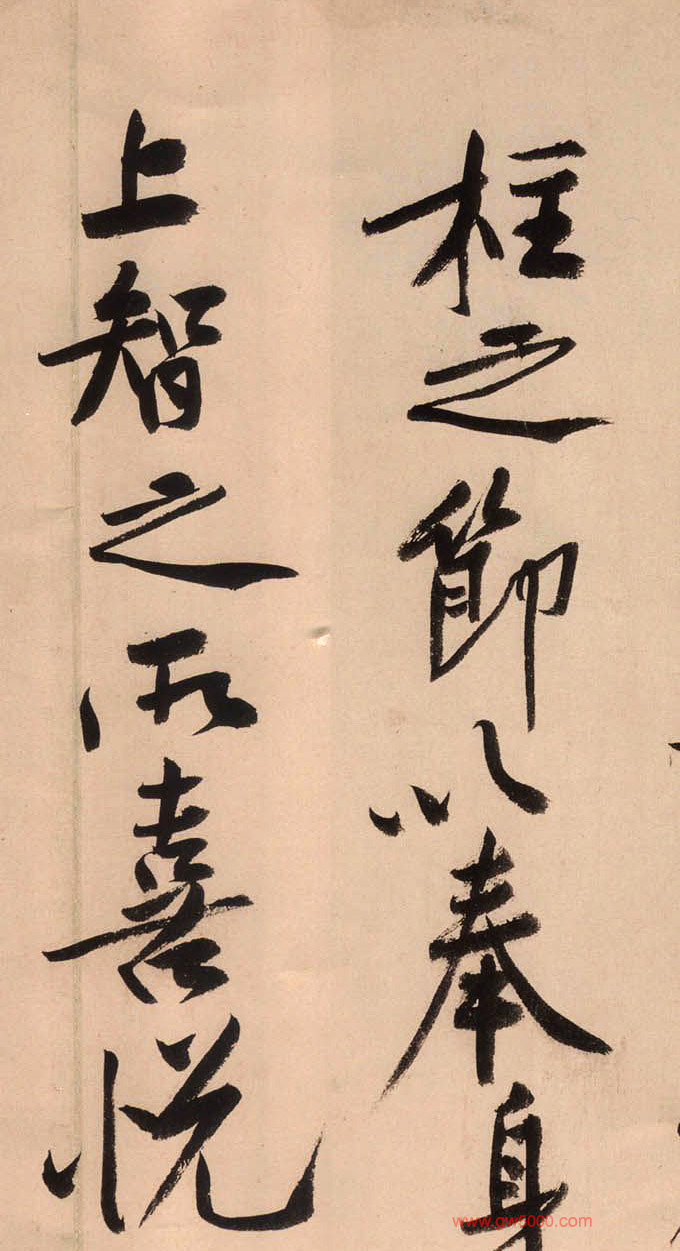 枉之節以奉身
上智之所喜悦
www.gw5000.com